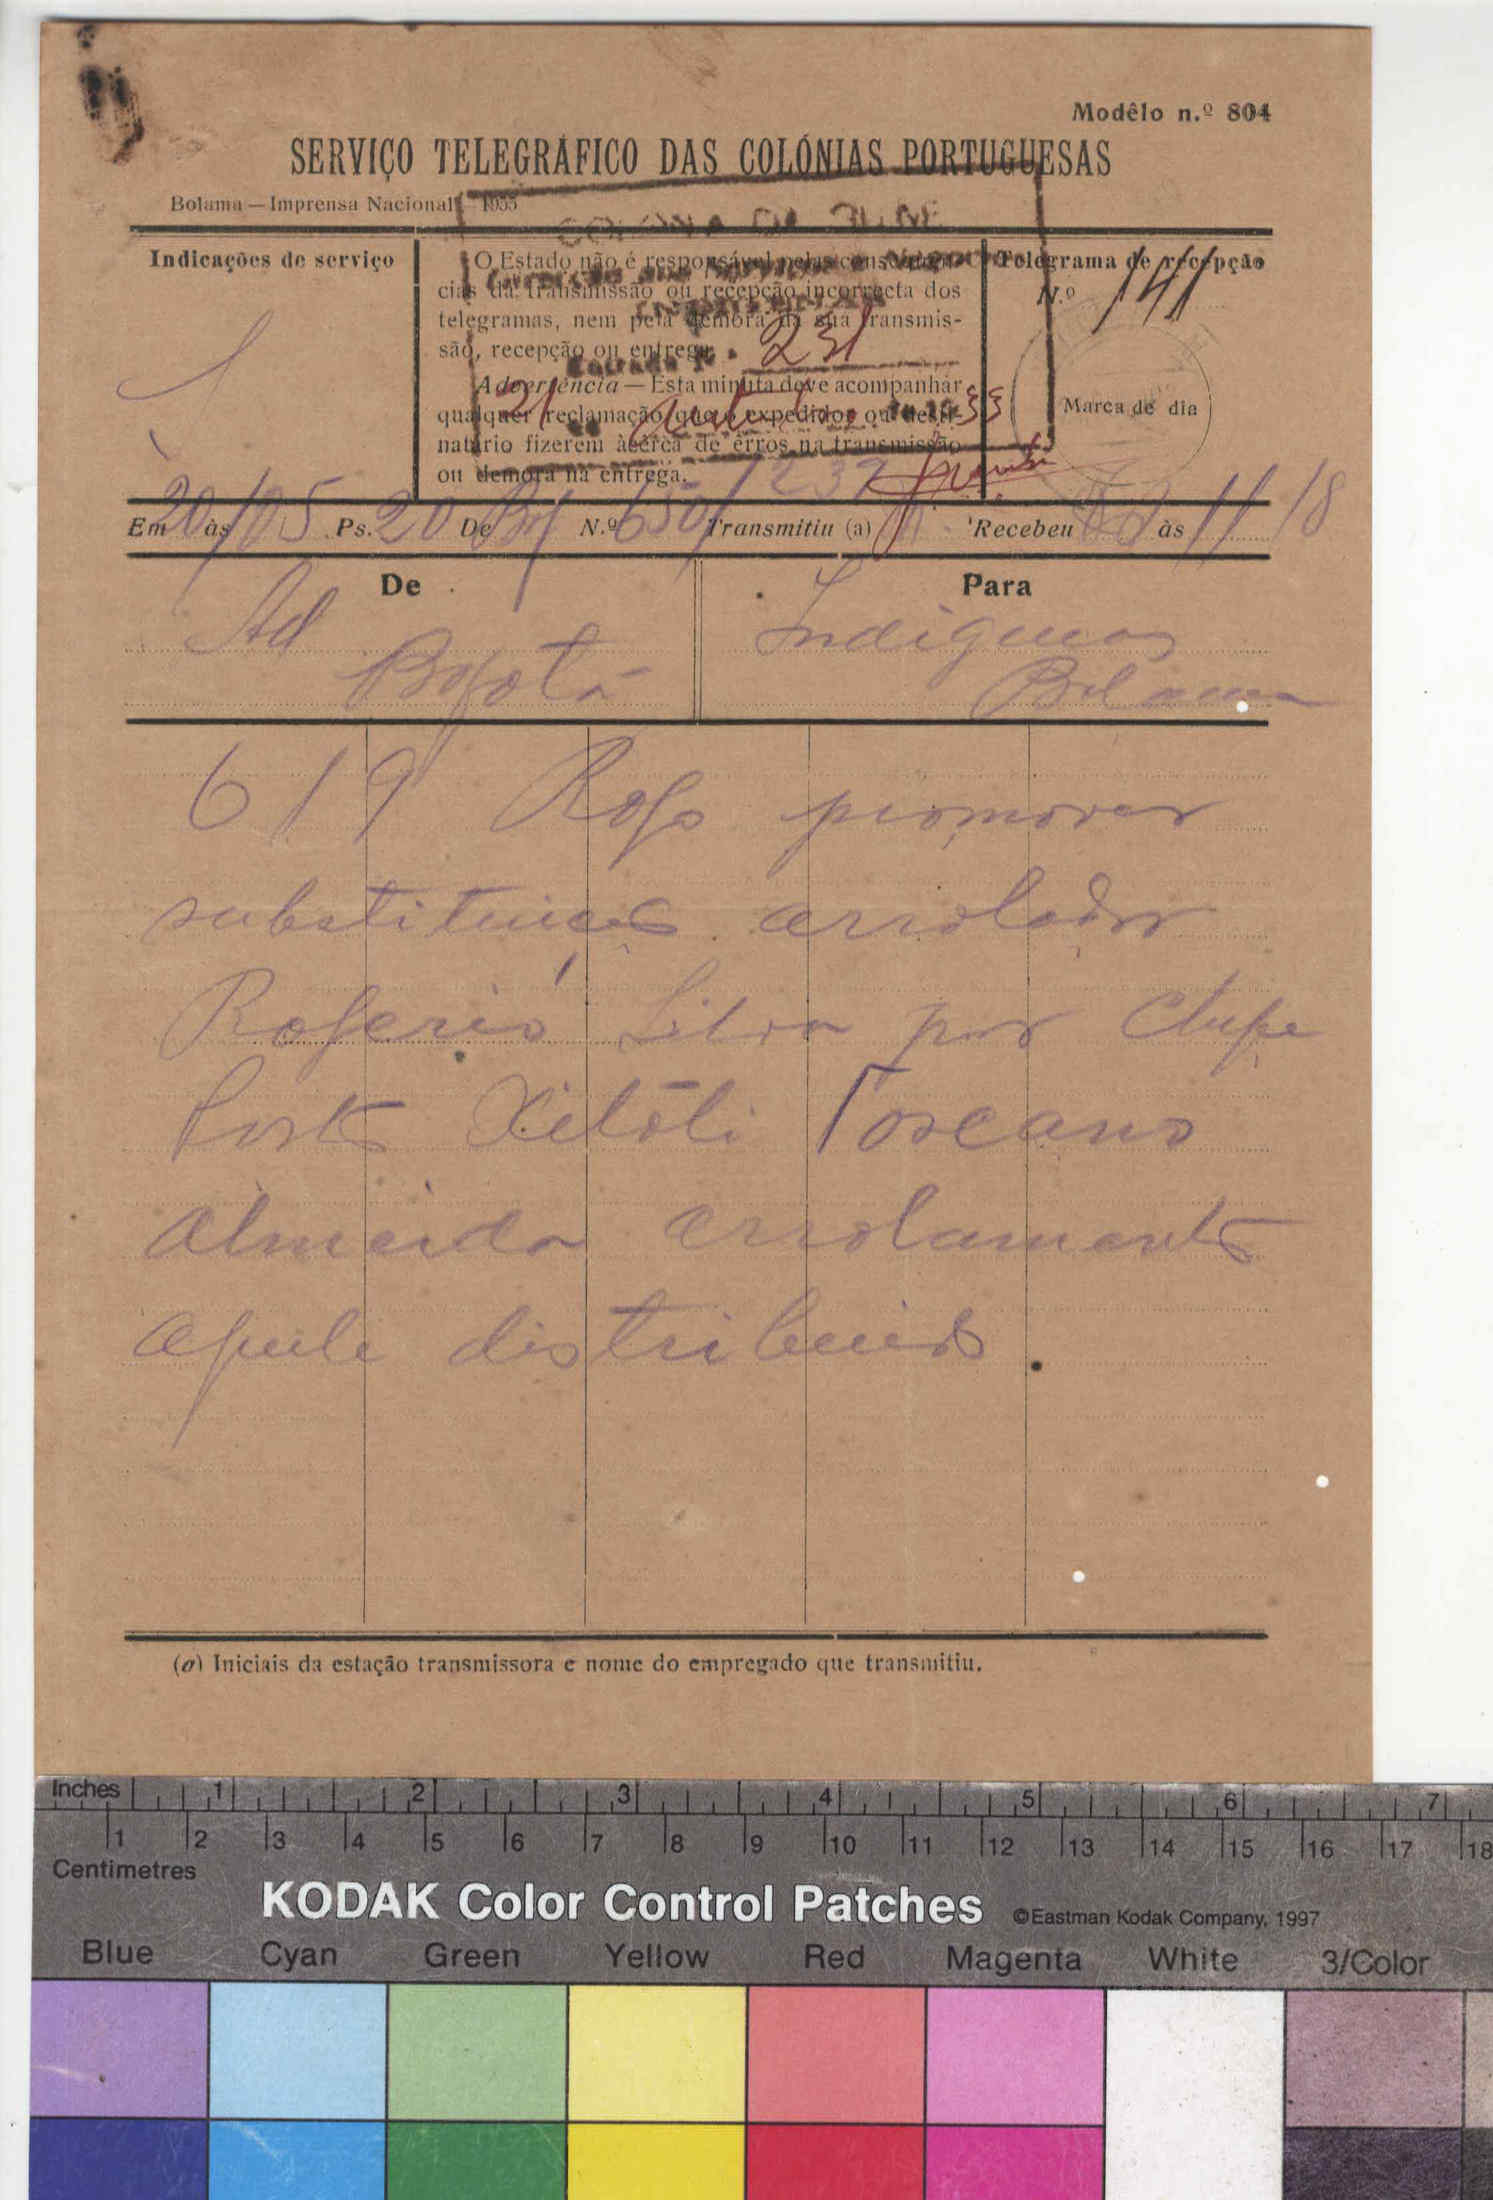 Modêlo n.º 804
SERVIÇO TELEGRÁFICO DAS COLÓNIAS PORTUGUESAS
Bolama — Imprensa Nacional — 1933
Indicações de serviço
O Estado não é responsável pelas consequên-
cias da transmissão ou recepção incorrecta dos
telegramas, nem pela demora da sua transmis-
são, recepção ou entrega.
Entrada N.º 231
Advertência — Esta minuta deve acompanhar
qualquer reclamação que o expedidor ou desti-
natário fizerem àcêrca de êrros na transmissão
ou demora na entrega.
21 33
1237
Telegrama de recepção
N.º 141
Marca de dia
Em 20 às 105 Ps. 20 De N.º 650 Transmitiu (a) Recebeu às 11/18
De
Ad
Para
Indigenas
Bolama
619 Rogo promover
substituição arrolador
Rogerio Silva por Chefe
Posto Xitóli Toscano
Almeida arrolamento
aquele distribuido
(a) Iniciais da estação transmissora e nome do empregado que transmitiu.
Inches 1 2 3 4 5 6 7
1 2 3 4 5 6 7 8 9 10 11 12 13 14 15 16 17 18
Centimetres
KODAK Color Control Patches ©Eastman Kodak Company, 1997
Blue Cyan Green Yellow Red Magenta White 3/Color